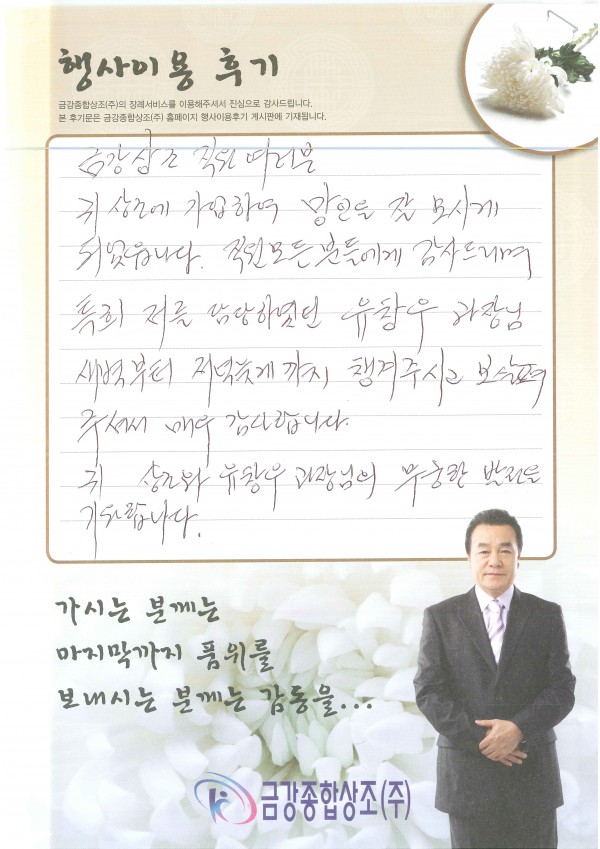 행사이용 후기
금강종합상조(주)의 장례서비스를 이용해주셔서 진심으로 감사드립니다.
본 후기문은 금강종합상조(주) 홈페이지 행사이용후기 게시판에 기재됩니다.
금강상조 직원 여러분
귀 상조에 가입하여 망인을 잘 모시게
되었읍니다. 직원모든분들에게 감사드리며
특히 저를 담당하였던 유창우 과장님
새벽부터 저녁늦게까지 챙겨주시고 보살펴
주셔서 매우 감사합니다.
귀 상조와 유창우 과장님의 무궁한 발전을
기원합니다.
가시는 분께는
마지막까지 품위를
보내시는 분께는 감동을...
금강종합상조(주)